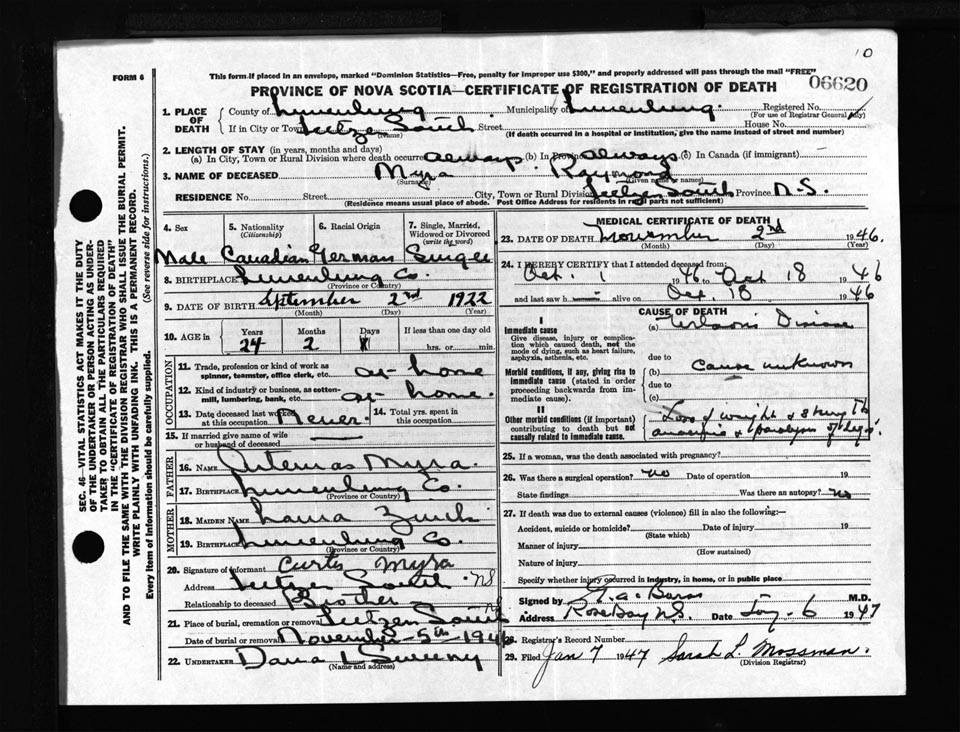 10
FORM 6
This form if placed in an envelope, marked "Dominion Statistics—Free, penalty for improper use $300," and properly addressed will pass through the mail "FREE"
06620
PROVINCE OF NOVA SCOTIA—CERTIFICATE OF REGISTRATION OF DEATH
SEC. 46—VITAL STATISTICS ACT MAKES IT THE DUTY
OF THE UNDERTAKER OR PERSON ACTING AS UNDER-
TAKER TO OBTAIN ALL THE PARTICULARS REQUIRED
IN THE "CERTIFICATE OF REGISTRATION OF DEATH"
AND TO FILE THE SAME WITH THE DIVISION REGISTRAR WHO SHALL ISSUE THE BURIAL PERMIT.
WRITE PLAINLY WITH UNFADING INK. THIS IS A PERMANENT RECORD.
Every item of Information should be carefully supplied. (See reverse side for instructions.)
1. PLACE OF DEATH County of Lunenburg Municipality of Lunenburg. Registered No.
(For use of Registrar General only)
If in City or Town South Street House No.
(Name) (If death occurred in a hospital or institution, give the name instead of street and number)
2. LENGTH OF STAY (in years, months and days)
(a) In City, Town or Rural Division where death occurred always. (b) In Province always (c) In Canada (if immigrant)
3. NAME OF DECEASED Myra Raymond
(Surname) (Given name or names)
RESIDENCE No. Street City, Town or Rural Division South Province N.S.
(Residence means usual place of abode. Post Office Address for residents in rural parts not sufficient)
4. Sex 5. Nationality (Citizenship) 6. Racial Origin 7. Single, Married, Widowed or Divorced (write the word)
Male Canadian German Single
8. BIRTHPLACE Lunenburg Co.
(Province or Country)
9. DATE OF BIRTH September 2nd 1922
(Month) (Day) (Year)
10. AGE in Years Months Days If less than one day old
24 2 hrs. or min.
OCCUPATION
11. Trade, profession or kind of work as spinner, teamster, office clerk, etc. at home
12. Kind of industry or business, as cotton-mill, lumbering, bank, etc. at home.
13. Date deceased last worked at this occupation Never. 14. Total yrs. spent in this occupation
15. If married give name of wife or husband of deceased —
FATHER
16. NAME Artemas Myra.
17. BIRTHPLACE Lunenburg Co.
(Province or Country)
MOTHER
18. MAIDEN NAME Laura Zinck
19. BIRTHPLACE Lunenburg Co.
(Province or Country)
20. Signature of informant Curtis Myra
Address South N.S
Relationship to deceased Brother
21. Place of burial, cremation or removal South N.S
Date of burial or removal November 5th 1946
22. UNDERTAKER Dana L Sweeny
(Name and address)
MEDICAL CERTIFICATE OF DEATH
23. DATE OF DEATH November 2nd 1946.
(Month) (Day) (Year)
24. I HEREBY CERTIFY that I attended deceased from:
Oct. 1 1946 to Oct 18 1946
and last saw h alive on Oct. 18 1946
CAUSE OF DEATH
I
Immediate cause
Give disease, injury or complica-
tion which caused death, not the
mode of dying, such as heart failure,
asphyxia, asthenia, etc.
(a) Disease
due to
Morbid conditions, if any, giving rise to
immediate cause (stated in order
proceeding backwards from im-
mediate cause).
(b) Cause unknown
due to
(c)
II
Other morbid conditions (if important)
contributing to death but not
causally related to immediate cause.
Loss of weight & strength
& paralysis of legs.
25. If a woman, was the death associated with pregnancy?
26. Was there a surgical operation? no Date of operation 19
State findings Was there an autopsy? no
27. If death was due to external causes (violence) fill in also the following:—
Accident, suicide or homicide? Date of injury 19
(State which)
Manner of injury
(How sustained)
Nature of injury
Specify whether injury occurred in industry, in home, or in public place
Signed by M.D.
Address Rose Bay N.S. Date Jany. 6 1947
28. Registrar's Record Number
29. Filed Jan 7 1947 Sarah L. Mossman.
(Division Registrar)